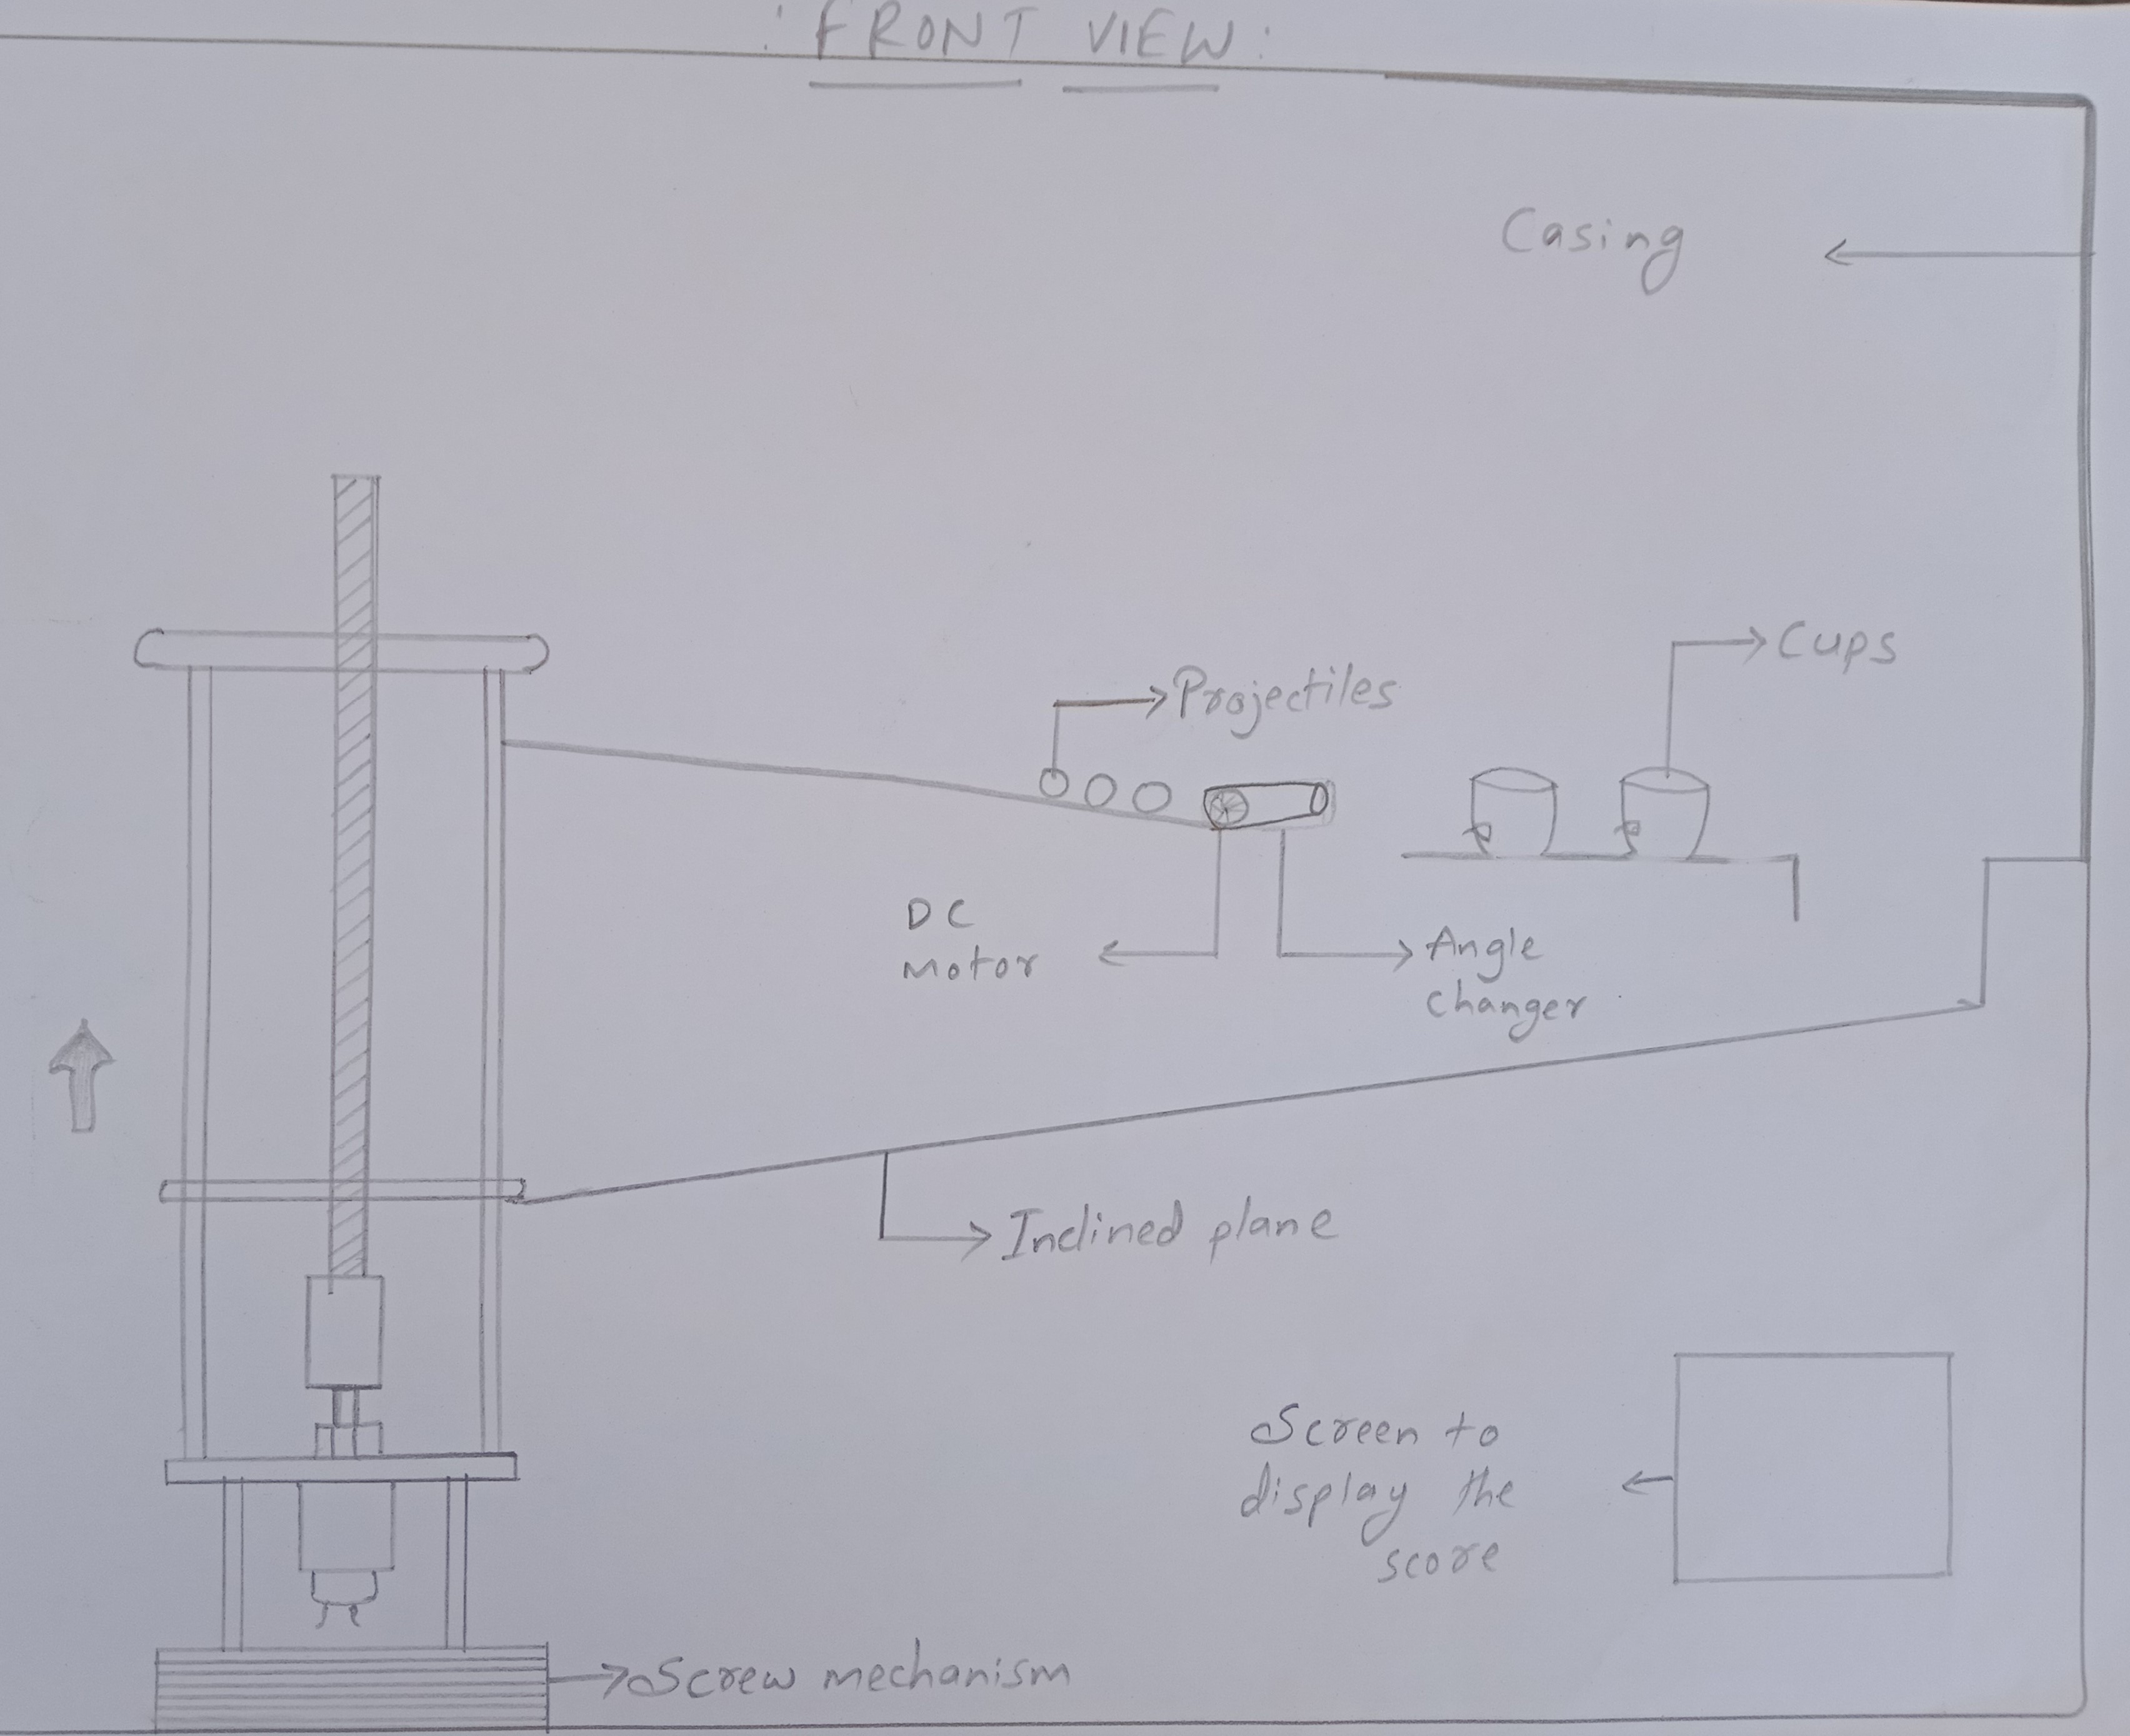 : FRONT VIEW :
Casing
Cups
Projectiles
DC
Motor
Angle
changer
Inclined plane
Screen to
display the
score
Screw mechanism